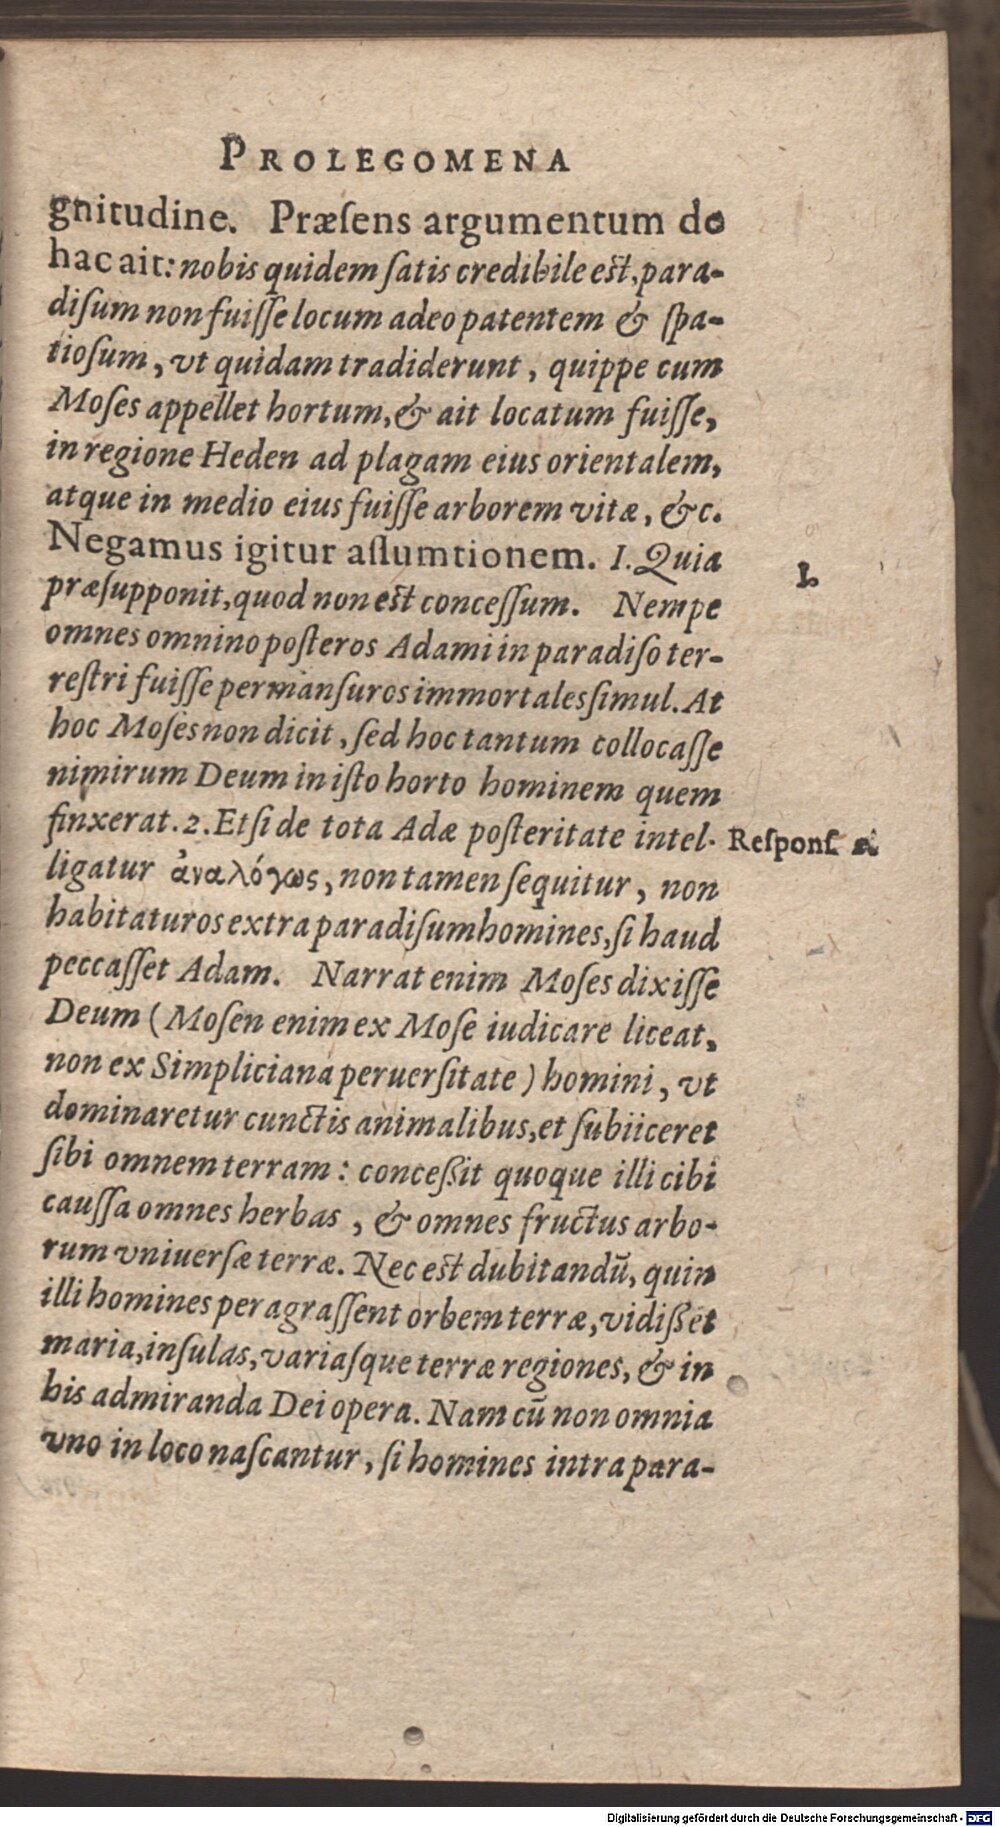 PROLEGOMENA
gnitudine. Præſens argumentum de
hac ait: nobis quidem ſatis credibile est, para-
diſum non fuiſſe locum adeo patentem & ſpa-
tioſum, vt quidam tradiderunt, quippe cum
Moſes appellet hortum, & ait locatum fuiſſe,
in regione Heden ad plagam eius orientalem,
atque in medio eius fuiſſe arborem vitæ, &c.
Negamus igitur aſſumtionem. I. Quia
I.
præſupponit, quod non est conceſſum. Nempe
omnes omnino poſteros Adami in paradiſo ter-
reſtri fuiſſe permanſuros immortales ſimul. At
hoc Moſes non dicit, ſed hoc tantum collocaſſe
nimirum Deum in iſto horto hominem quem
finxerat. 2. Etſi de tota Adæ poſteritate intel-
Reſponſ.
ligatur ἀναλόγως, non tamen ſequitur, non
habitaturos extra paradiſum homines, ſi haud
peccaſſet Adam. Narrat enim Moſes dixiſſe
Deum (Moſen enim ex Moſe iudicare liceat,
non ex Simpliciana peruerſitate) homini, vt
dominaretur cunctis animalibus, et ſubiiceret
ſibi omnem terram: conceßit quoque illi cibi
cauſſa omnes herbas, & omnes fructus arbo-
rum vniuerſæ terræ. Nec est dubitandũ, quin
illi homines peragraſſent orbem terræ, vidißēt
maria, inſulas, variaſque terræ regiones, & in
his admiranda Dei opera. Nam cũ non omnia
vno in loco naſcantur, ſi homines intra para-
Digitalisierung gefördert durch die Deutsche Forschungsgemeinschaft - DFG